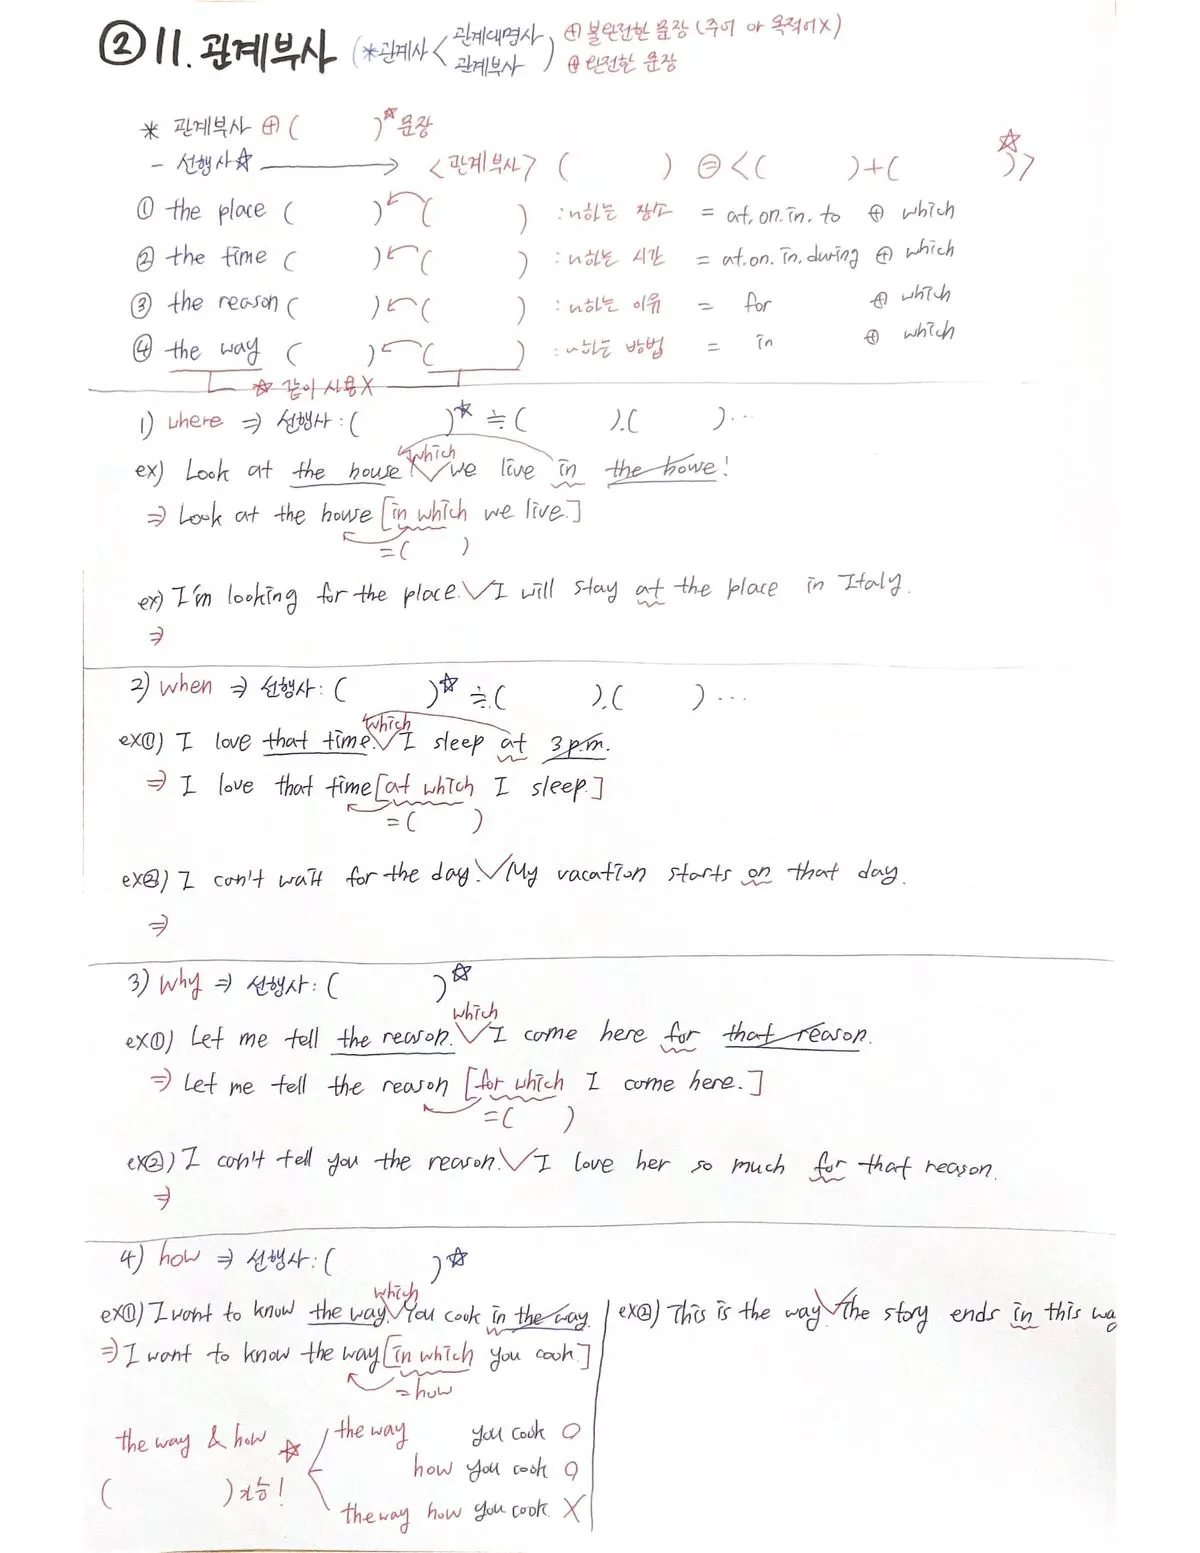 ② 11. 관계부사 (*관계사 < 관계대명사 ⊕ 불완전한 문장 (주어 or 목적어X)
관계부사 ) ⊕ 완전한 문장
* 관계부사 ⊕ ( )☆ 문장
- 선행사☆ → <관계부사> ( ) ⊜ <( )+( )>☆
① the place ( ) ( ) : ~하는 장소 = at. on. in. to ⊕ which
② the time ( ) ( ) : ~하는 시간 = at. on. in. during ⊕ which
③ the reason ( ) ( ) : ~하는 이유 = for ⊕ which
④ the way ( ) ( ) : ~하는 방법 = in ⊕ which
☆ 같이 사용X
1) where ⇒ 선행사 : ( )☆ ≒ ( ).( )...
which
ex) Look at the house. ∨we live in the house!
⇒ Look at the house [in which we live.]
=( )
ex) I'm looking for the place.∨I will stay at the place in Italy.
⇒
2) when ⇒ 선행사 : ( )☆ ≒ ( ).( )...
which
ex①) I love that time.∨I sleep at 3 p.m.
⇒ I love that time[at which I sleep.]
=( )
ex②) I can't wait for the day.∨My vacation starts on that day.
⇒
3) why ⇒ 선행사 : ( )☆
which
ex①) Let me tell the reason.∨I come here for that reason.
⇒ Let me tell the reason [for which I come here.]
=( )
ex②) I can't tell you the reason.∨I love her so much for that reason.
⇒
4) how ⇒ 선행사 : ( )☆
which
ex①) I want to know the way.∨You cook in the way.
⇒ I want to know the way[in which you cook.]
=how
the way & how ☆
( )가능!
the way you cook O
how you cook O
the way how you cook X
ex②) This is the way.∨The story ends in this wa